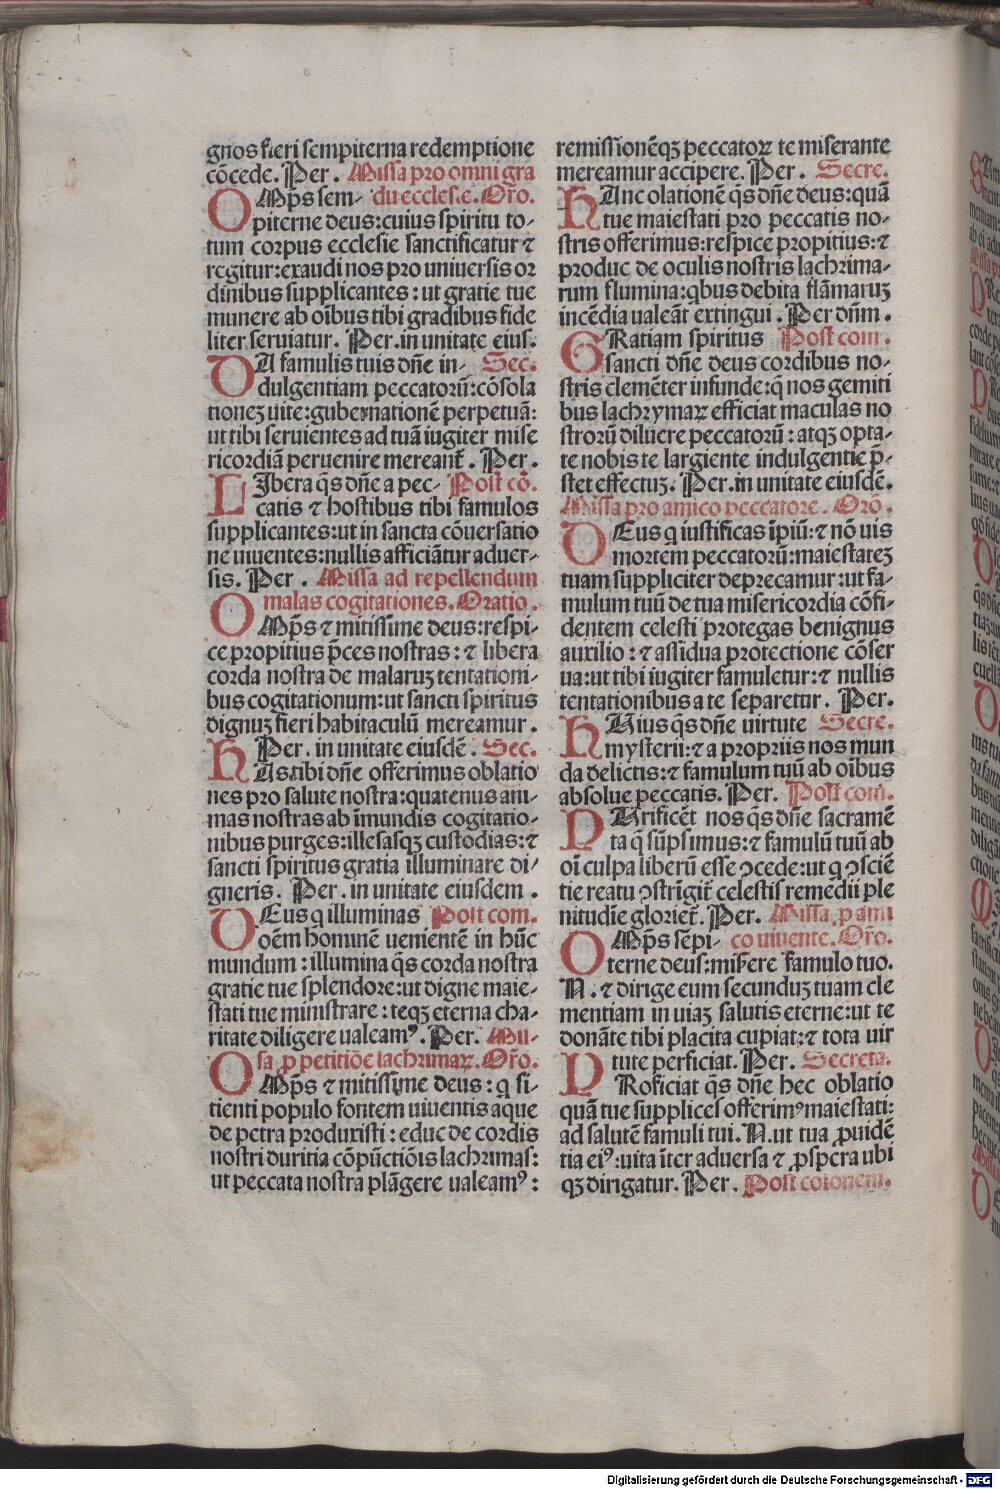 gnos fieri sempiterna redemptione
cōcede. Per. Missa pro omni gra
OMp̄s sem- du eccles.e. Or̄o.
piterne deus: cuius spiritu to-
tum corpus ecclesie sanctificatur ⁊
regitur: exaudi nos pro uniuersis or
dinibus supplicantes: ut gratie tue
munere ab oībus tibi gradibus fide
liter seruiatur. Per. in unitate eius.
DA famulis tuis dn̄e in- Sec.
dulgentiam peccatorū: cōsola
tioneꝫ uite: gubernationē perpetuā:
ut tibi seruientes ad tuā iugiter mise
ricordiā peruenire mereant̄. Per.
LIbera q̄s dn̄e a pec- Post cō.
catis ⁊ hostibus tibi famulos
supplicantes: ut in sancta cōuersatio
ne uiuentes: nullis afficiātur aduer-
sis. Per. Missa ad repellendum
malas cogitationes. Oratio.
OMp̄s ⁊ mitissime deus: respi-
ce propitius p̄ces nostras: ⁊ libera
corda nostra de malaruꝫ tentationi-
bus cogitationum: ut sancti spiritus
dignuꝫ fieri habitaculū mereamur.
Per. in unitate eiusdē. Sec.
HAs tibi dn̄e offerimus oblatio
nes pro salute nostra: quatenus ani-
mas nostras ab īmundis cogitatio-
nibus purges: illesasqꝫ custodias: ⁊
sancti spiritus gratia illuminare di-
gneris. Per. in unitate eiusdem.
DEus q illuminas Post com.
oēm hominē uenientē in hūc
mundum: illumina q̄s corda nostra
gratie tue splendore: ut digne maie-
stati tue ministrare: teqꝫ eterna cha-
ritate diligere ualeamꝰ. Per. Mis-
sa ꝓ petitiōe lachrimaꝝ. Or̄o.
OMp̄s ⁊ mitissime deus: q si-
tienti populo fontem uiuentis aque
de petra produxisti: educ de cordis
nostri duritia cōpūctiōis lachrimas:
ut peccata nostra plāgere ualeamꝰ:
remissionēqꝫ peccatoꝝ te miserante
mereamur accipere. Per. Secre.
HAnc olationē q̄s dn̄e deus: quā
tue maiestati pro peccatis no-
stris offerimus: respice propitius: ⁊
produc de oculis nostris lachrima-
rum flumina: qbus debita flāmaruꝫ
incēdia ualeāt extingui. Per dn̄m.
GRatiam spiritus Post com.
sancti dn̄e deus cordibus no-
stris clemēter infunde: q̄ nos gemiti
bus lachrymaꝝ efficiat maculas no
strorū diluere peccatorū: atqꝫ opta-
te nobis te largiente indulgentie p̄-
stet effectuꝫ. Per. in unitate eiusdē.
Missa pro amico peccatore. Orō.
DEus q iustificas īpiū: ⁊ nō uis
mortem peccatorū: maiestateꝫ
tuam suppliciter deprecamur: ut fa-
mulum tuū de tua misericordia cōfi-
dentem celesti protegas benignus
auxilio: ⁊ assidua protectione cōser
ua: ut tibi iugiter famuletur: ⁊ nullis
tentationibus a te separetur. Per.
HUius q̄s dn̄e uirtute Secre.
mysterii: ⁊ a propriis nos mun
da delictis: ⁊ famulum tuū ab oībus
absolue peccatis. Per. Post com.
PUrificēt nos q̄s dn̄e sacramē
ta q̄ sūpsimus: ⁊ famulū tuū ab
oī culpa liberū esse ꝯcede: ut q ꝯsciē
tie reatu ꝯstrīgit̄ celestis remedii ple
nitudīe gloriet̄. Per. Missa. p ami
OMp̄s sēpi- co uiuente. Or̄o.
terne deus: mīsere famulo tuo.
N. ⁊ dirige eum secunduꝫ tuam cle
mentiam in uiaꝫ salutis eterne: ut te
donāte tibi placita cupiat: ⁊ tota uir
tute perficiat. Per. Secreta.
PRoficiat q̄s dn̄e hec oblatio
quā tue supplices offerimꝰ maiestati:
ad salutē famuli tui. N. ut tua ꝓuidē
tia eiꝰ: uita īter aduersa ⁊ ꝓspera ubi
qꝫ dirigatur. Per. Post coīonem.
Digitalisierung gefördert durch die Deutsche Forschungsgemeinschaft - DFG